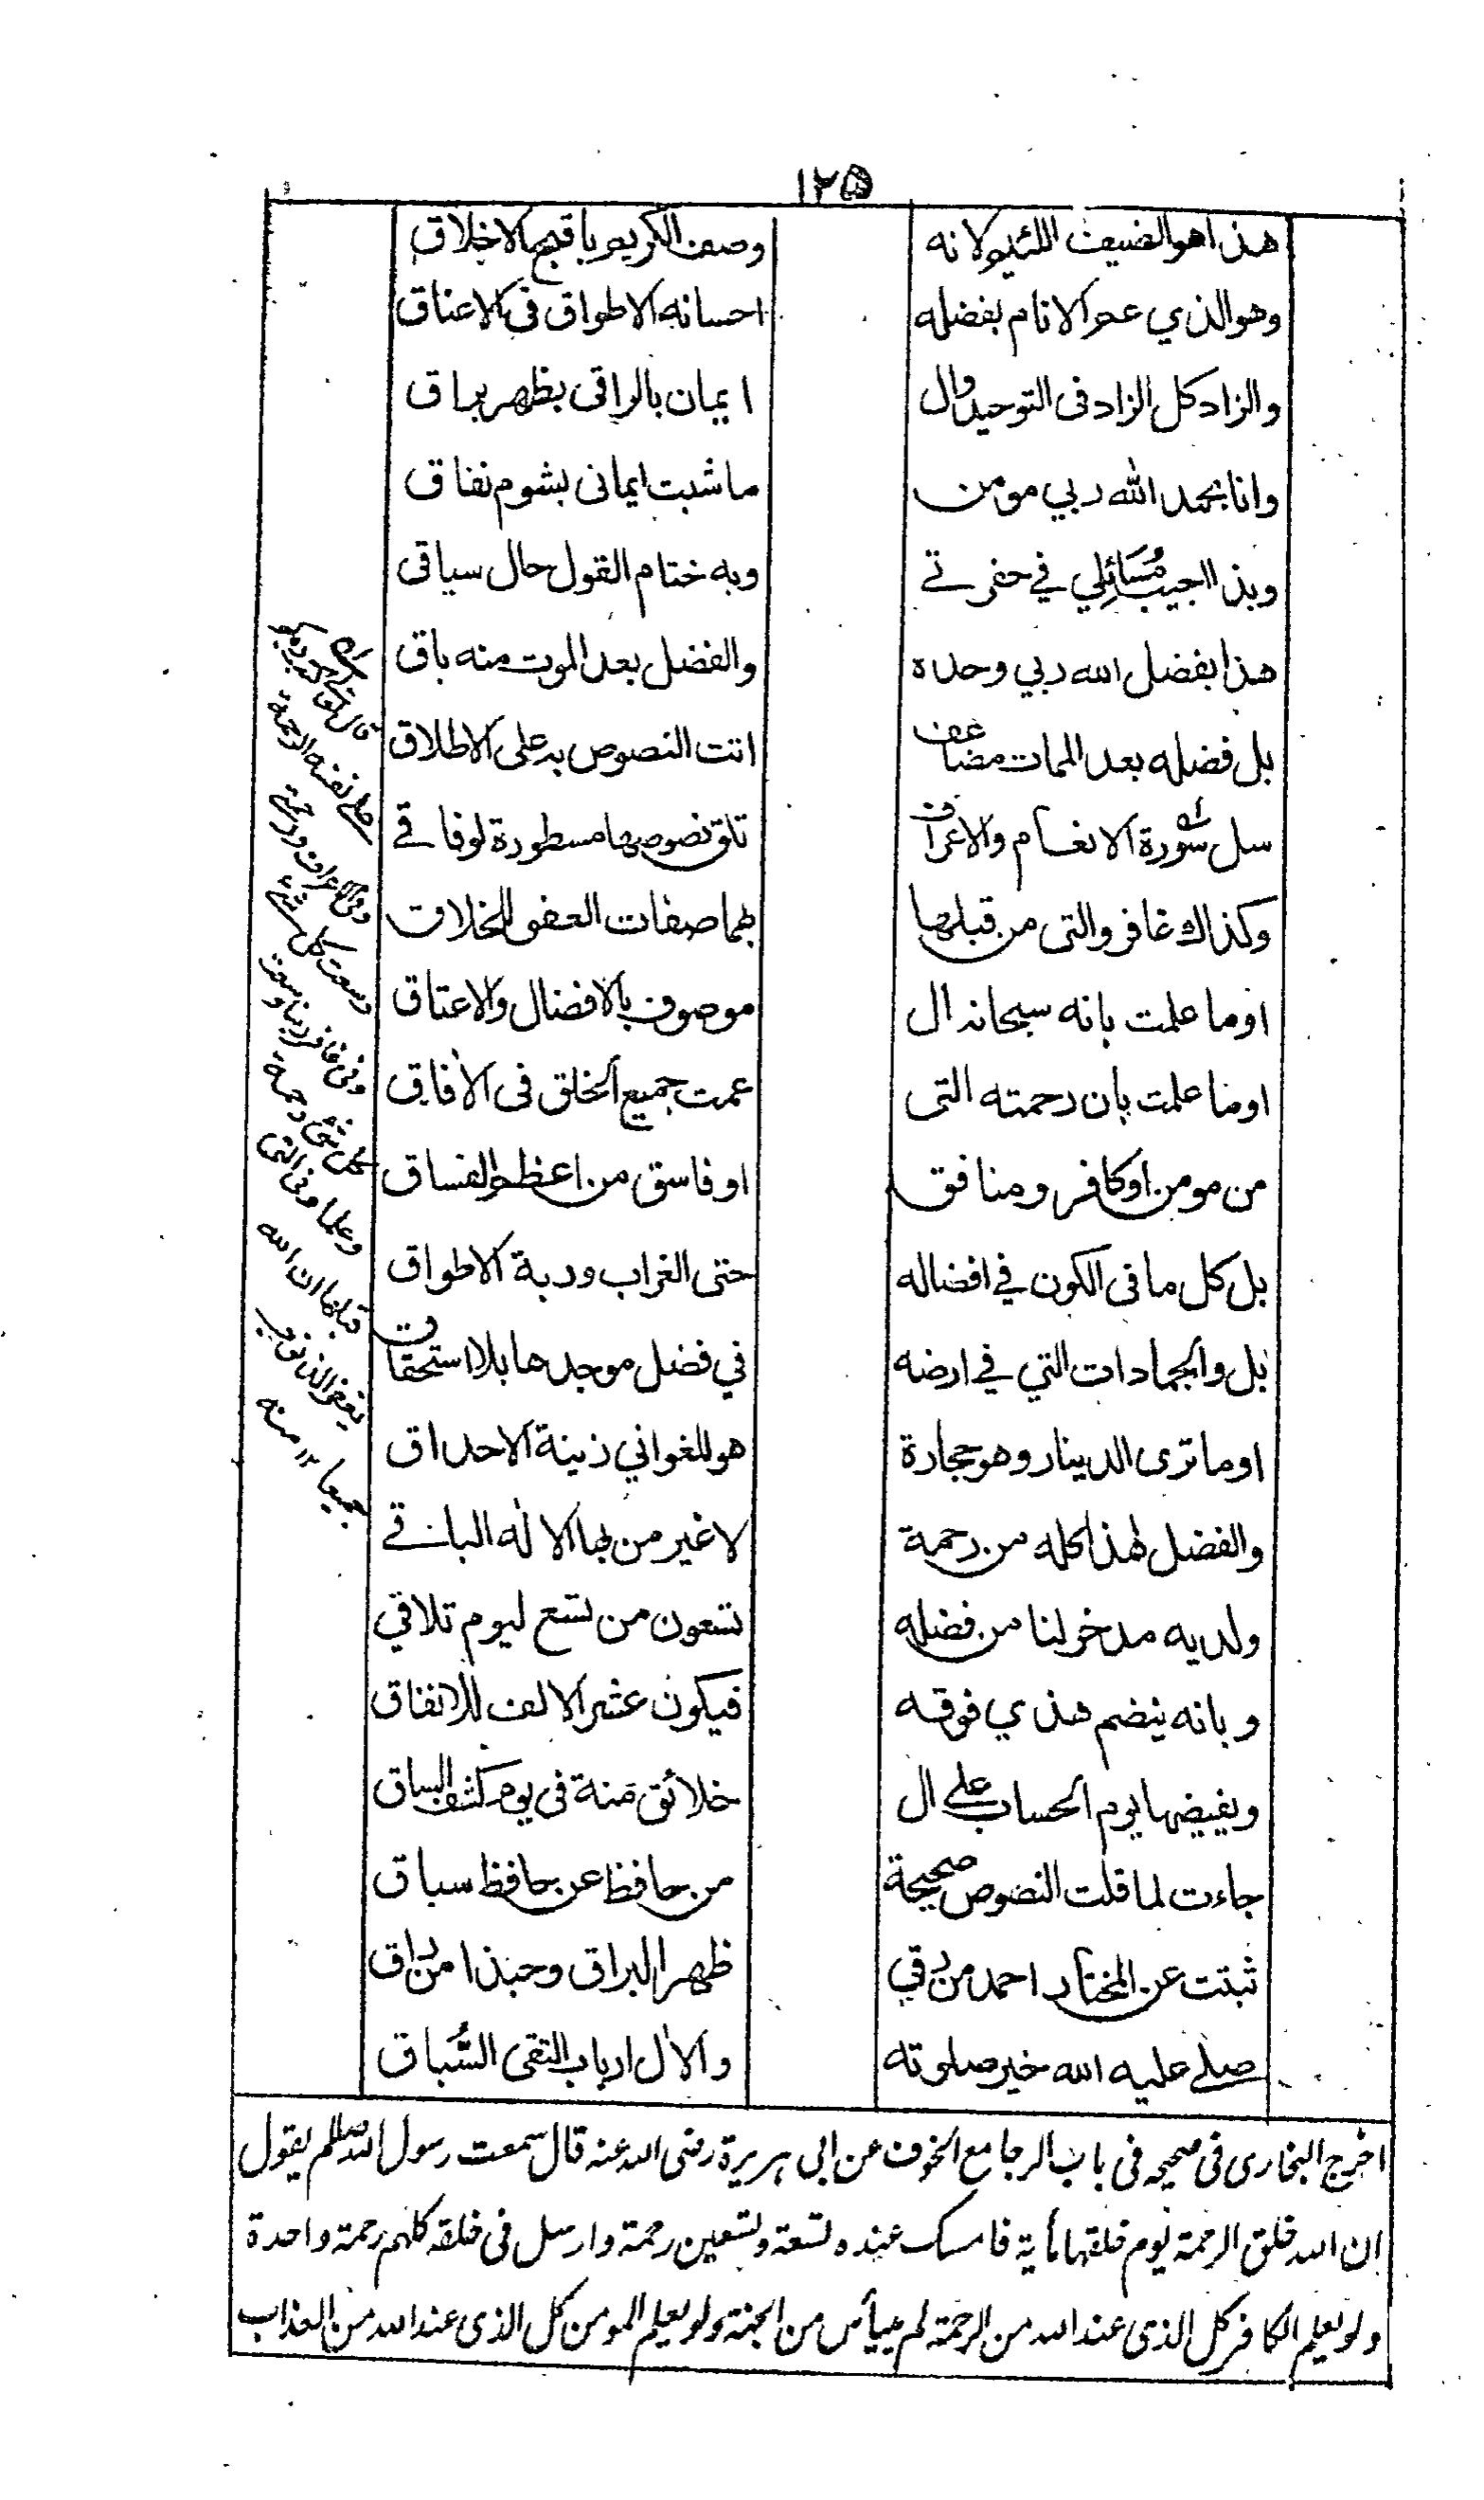 ١٢٥
هذا هو الضيف اللئيم لانه وصف الكريم باقبح الاخلاق
وهو الذي عم الانام بفضله احسانه الاطواق فى الاعناق
والزاد كل الزاد فى التوحيد وال ايمان بالراقى بظهر براق
وانا بحمد الله ربي مومن ما شبت ايمانى بشوم نفاق
وبذا اجيب مُسَائِلِي في حفرتے وبه ختام القول حال سياقى
هذا بفضل الله ربي وحده والفضل بعد الموت منه باق
بل فضله بعد الممات مضاعف اتت النصوص به على الاطلاق
سل سورة الانعام والاعراف تلق نصوصها مسطورة لوفاقے
وكذاك غافر والتى من قبلها بهما صفات العفو للخلاق
اوما علمت بانه سبحانه ال موصوف بالافضال والاعتاق
اوما علمت بان رحمته التى عمت جميع الخلق فى الأفاق
من مومن او كافر ومنافق او فاسق من اعظم الفساق
بل كل ما فى الكون في افضاله حتى الغراب وربة الاطواق
بل والجمادات التي في ارضه في فضل موجدها بلا استحقاق
اوما ترى الدينار وهو حجارة هو للغواني زينة الاحداق
والفضل لهذا كله من رحمة لا غير من بها الاله الباقے
ولديه مدخر لنا من فضله تسعون من تسع ليوم تلاقي
وبانه ينضم هذي فوقه فيكون عشر الالف للانفاق
ويفيضها يوم الحساب على ال خلائق منة فى يوم كشف الساق
جاءت لما قلت النصوص صحيحة من حافظ عن حافظ سباق
ثبتت عن المختار احمد من رقي ظهر البراق وحبذا من راق
صلے عليه الله خير صلوته والأل ارباب التقى السُّباق
على نفسه الرحمة
وفى الاعراف ورحمتى
وسعت كل شئ
وفى غافر ربنا وسعت
كل شئ رحمة
وعلما وفى التى
قبلها ان الله
يغفر الذنوب
جميعا ١٢ منه
اخرج البخارى فى صحيحه فى باب الرجا مع الخوف عن ابى هريرة رضى الله عنه قال سمعت رسول الله صلعم يقول
ان الله خلق الرحمة يوم خلقها مأية فامسك عنده تسعة وتسعين رحمة وارسل فى خلقه كلهم رحمة واحدة
ولو يعلم الكافر كل الذى عند الله من الرحمة لم ييأس من الجنة ولو يعلم المومن كل الذى عند الله من العذاب